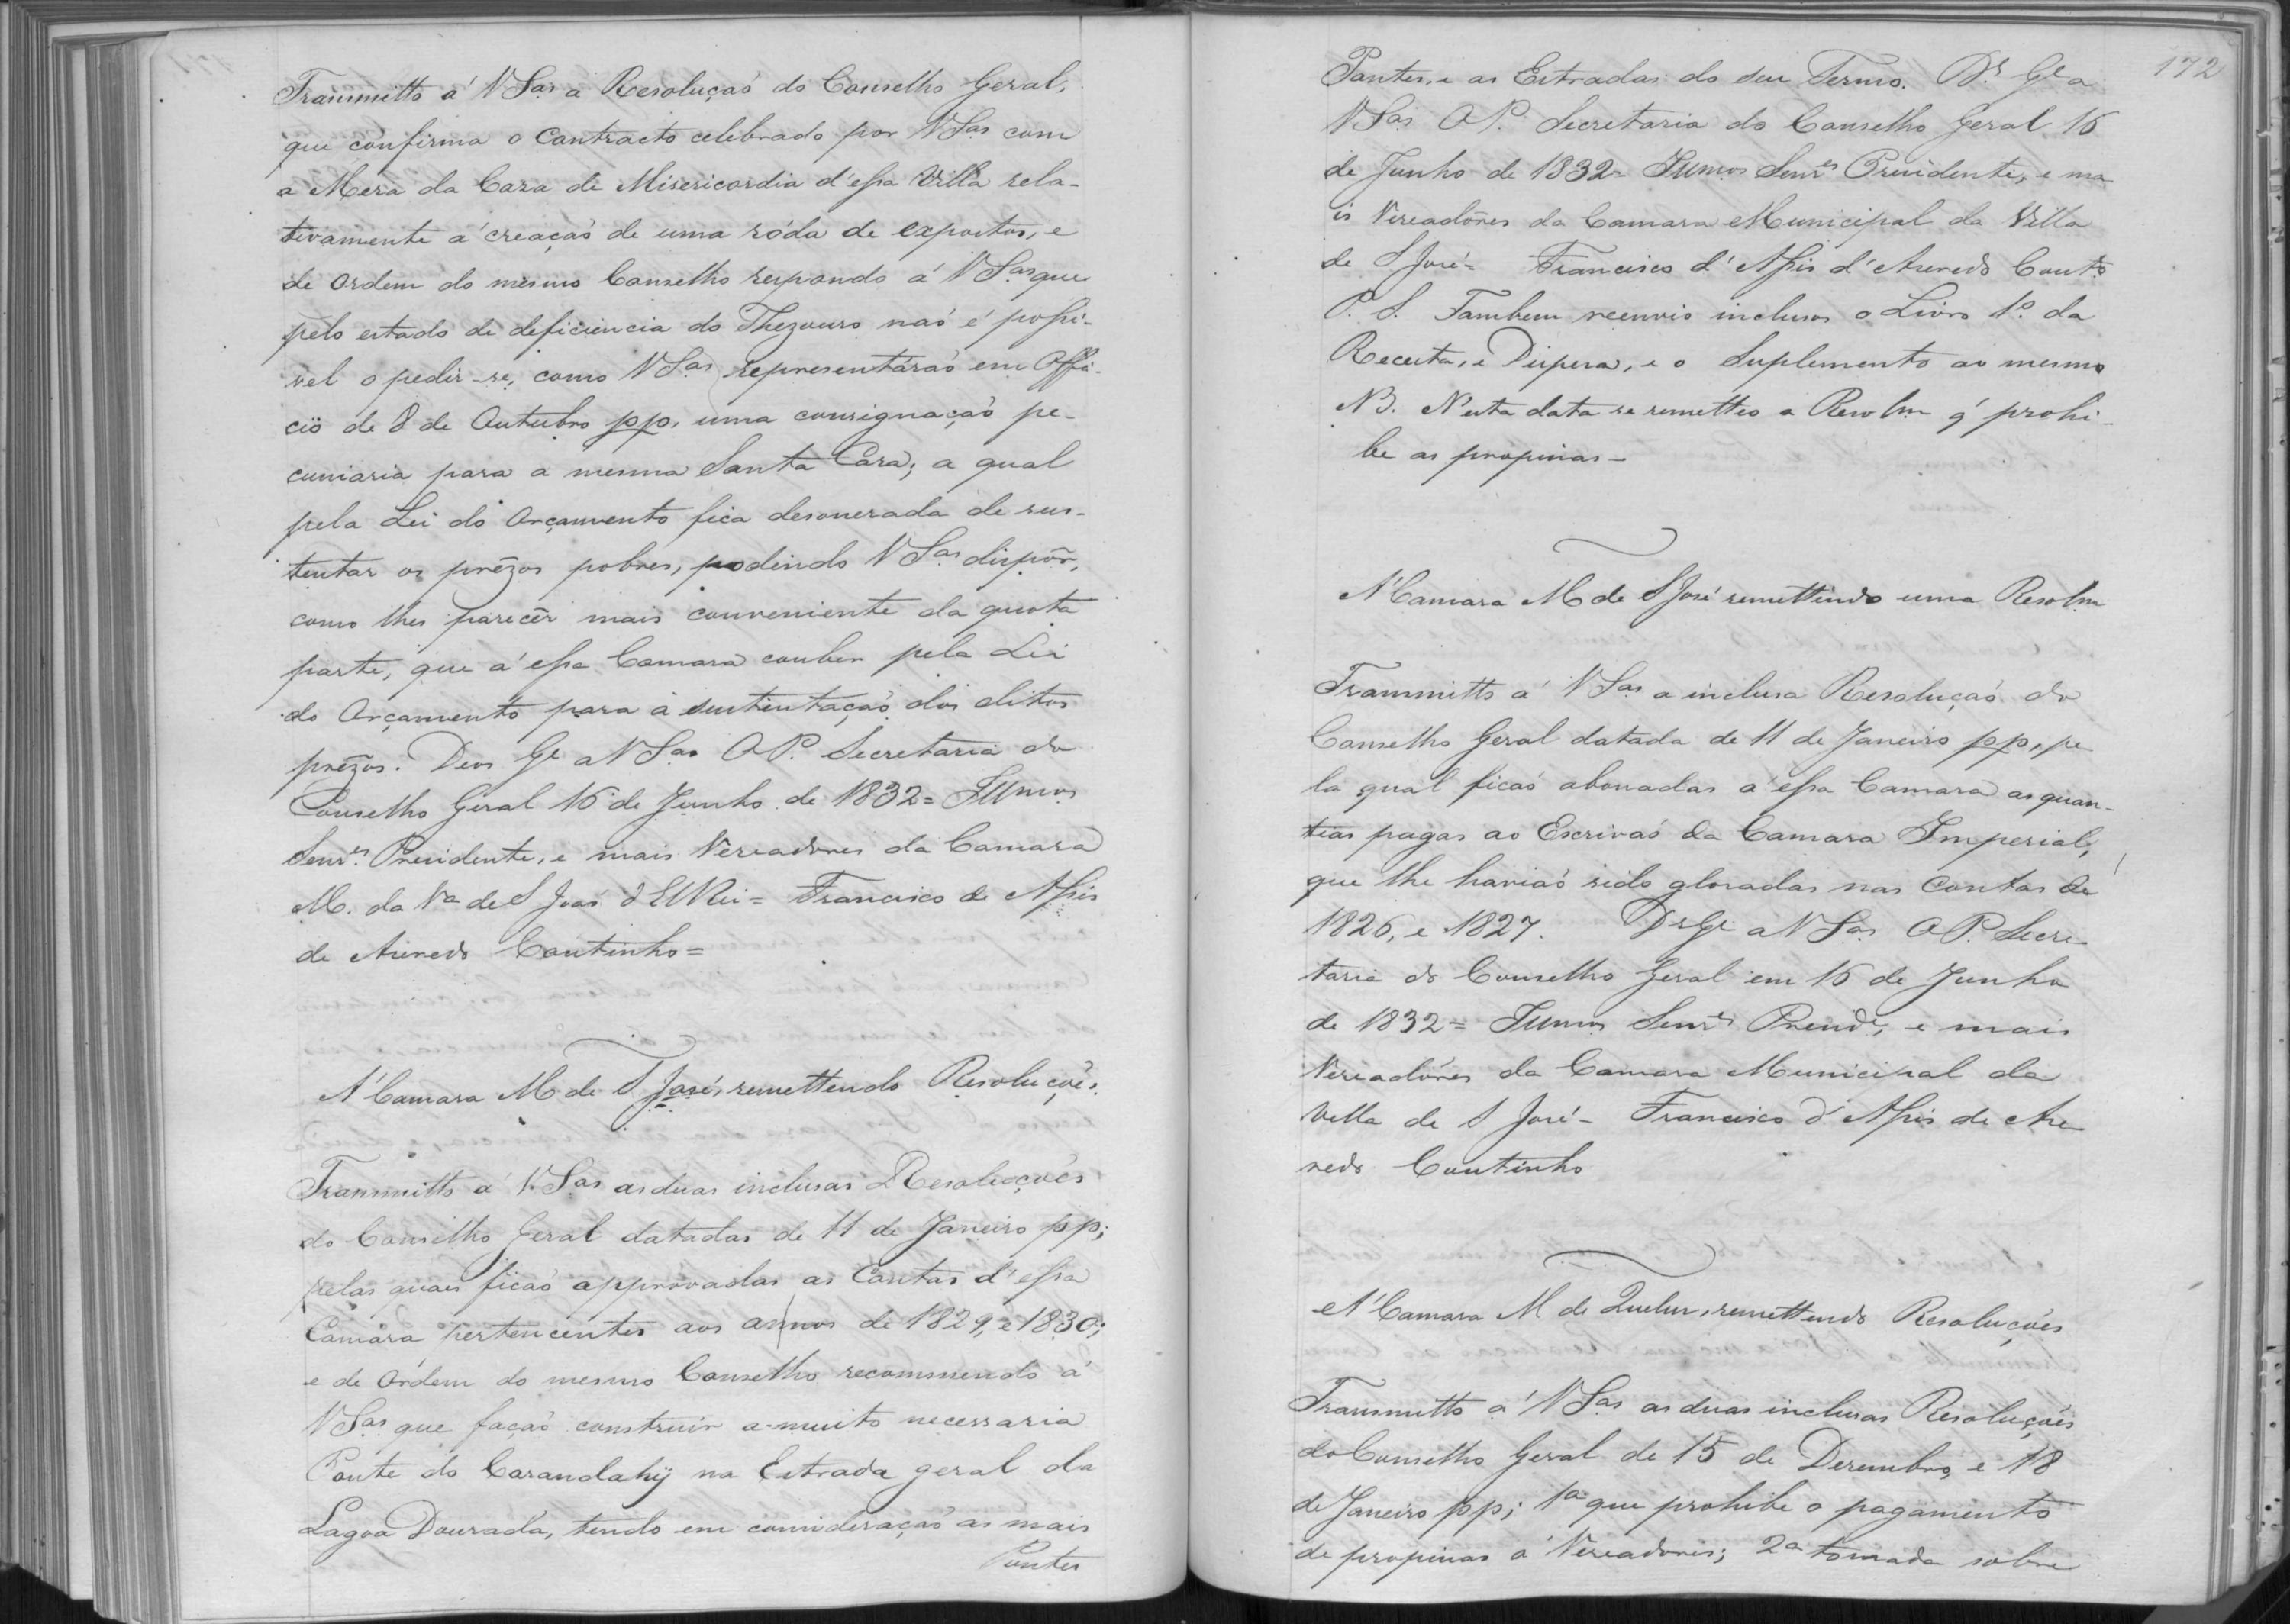 Transmitto á V Sas a Resoluçaõ do Conselho Geral,
que confirma o Contracto celebrado por V Sas com
a Meza da Caza de Misericordia d'essa Villa rela-
tivamente á creaçaõ de uma róda de expostos, e
de ordem do mesmo Conselho respondo á V Sas que
pelo estado de deficiencia do Thezouro naõ é possi-
vel o pedir-se, como V Sas representáraõ em Offi-
cio de 8 de Outubro pp. uma consignaçaõ pe-
cuniaria para a mesma Santa Caza; a qual
pela Lei do Orçamento fica desonerada de sus-
tentar os prezos pobres, podendo V Sas dispôr,
como lhes parecêr mais conveniente da quota
parte, que á essa Camara couber pela Lei
do Orçamento para a sustentaçaõ dos ditos
prezos. Deos Ge a V Sas O P. Secretaria do
Conselho Geral 16 de Junho de 1832 = Illmos
Senrs. Presidente, e mais Vereadores da Camara
M. da Va de S Joaõ d'El Rei = Francisco de Assis
de Azevedo Coutinho =
Á Camara M de S José, remettendo Resoluções.
Transmitto á V Sas as duas inclusas Resoluções
do Conselho Geral datadas de 11 de Janeiro pp;
pelas quaes ficaõ approvadas as Contas d'essa
Camara pertencentes aos annos de 1829, e 1830;
e de ordem do mesmo Conselho recommendo á
V Sas que façaõ construir a muito necessaria
Ponte do Carandahÿ na Estrada geral da
Lagoa Dourada, tendo em consideraçaõ as mais
Pontes
172
Pontes, e as Estradas do seu Termo. Ds. Ge a
V Sas O P. Secretaria do Conselho Geral 16
de Junho de 1832 = Illmos Senres Presidente, e ma
is Vereadores da Camara Municipal da Villa
de S José = Francisco d'Assis d'Azevedo Couto
P. S. Tambem reenvio inclusos o Livro 1o. da
Receita, e Dispeza, e o Suplemento ao mesmo
NB. N'esta data se remetteo a Resolm q' prohi-
be as propinas -
Á Camara M de S José remettendo uma Resolm
Transmitto á V Sas a inclusa Resoluçaõ do
Conselho Geral datada de 11 de Janeiro pp, pe
la qual ficaõ abonadas á essa Camara as quan-
tias pagas ao Escrivaõ da Camara Imperial,
que lhe haviaõ sido glosadas nas Contas de
1826, e 1827. Ds Ge a V Sas O P. Secre-
taria do Conselho Geral em 16 de Junho
de 1832 = Illmos Senrs Preside, e mais
Vereadores da Camara Municipal da
Villa de S José - Francisco d'Assis de Aze-
vedo Coutinho
Á Camara M de Queluz, remettendo Resoluções
Transmitto á V Sas as duas inclusas Resoluções
do Conselho Geral de 15 de Dezembro, e 18
de Janeiro pp; 1a que prohibe o pagamento
de propinas á Vereadores; 2a tomada sobre